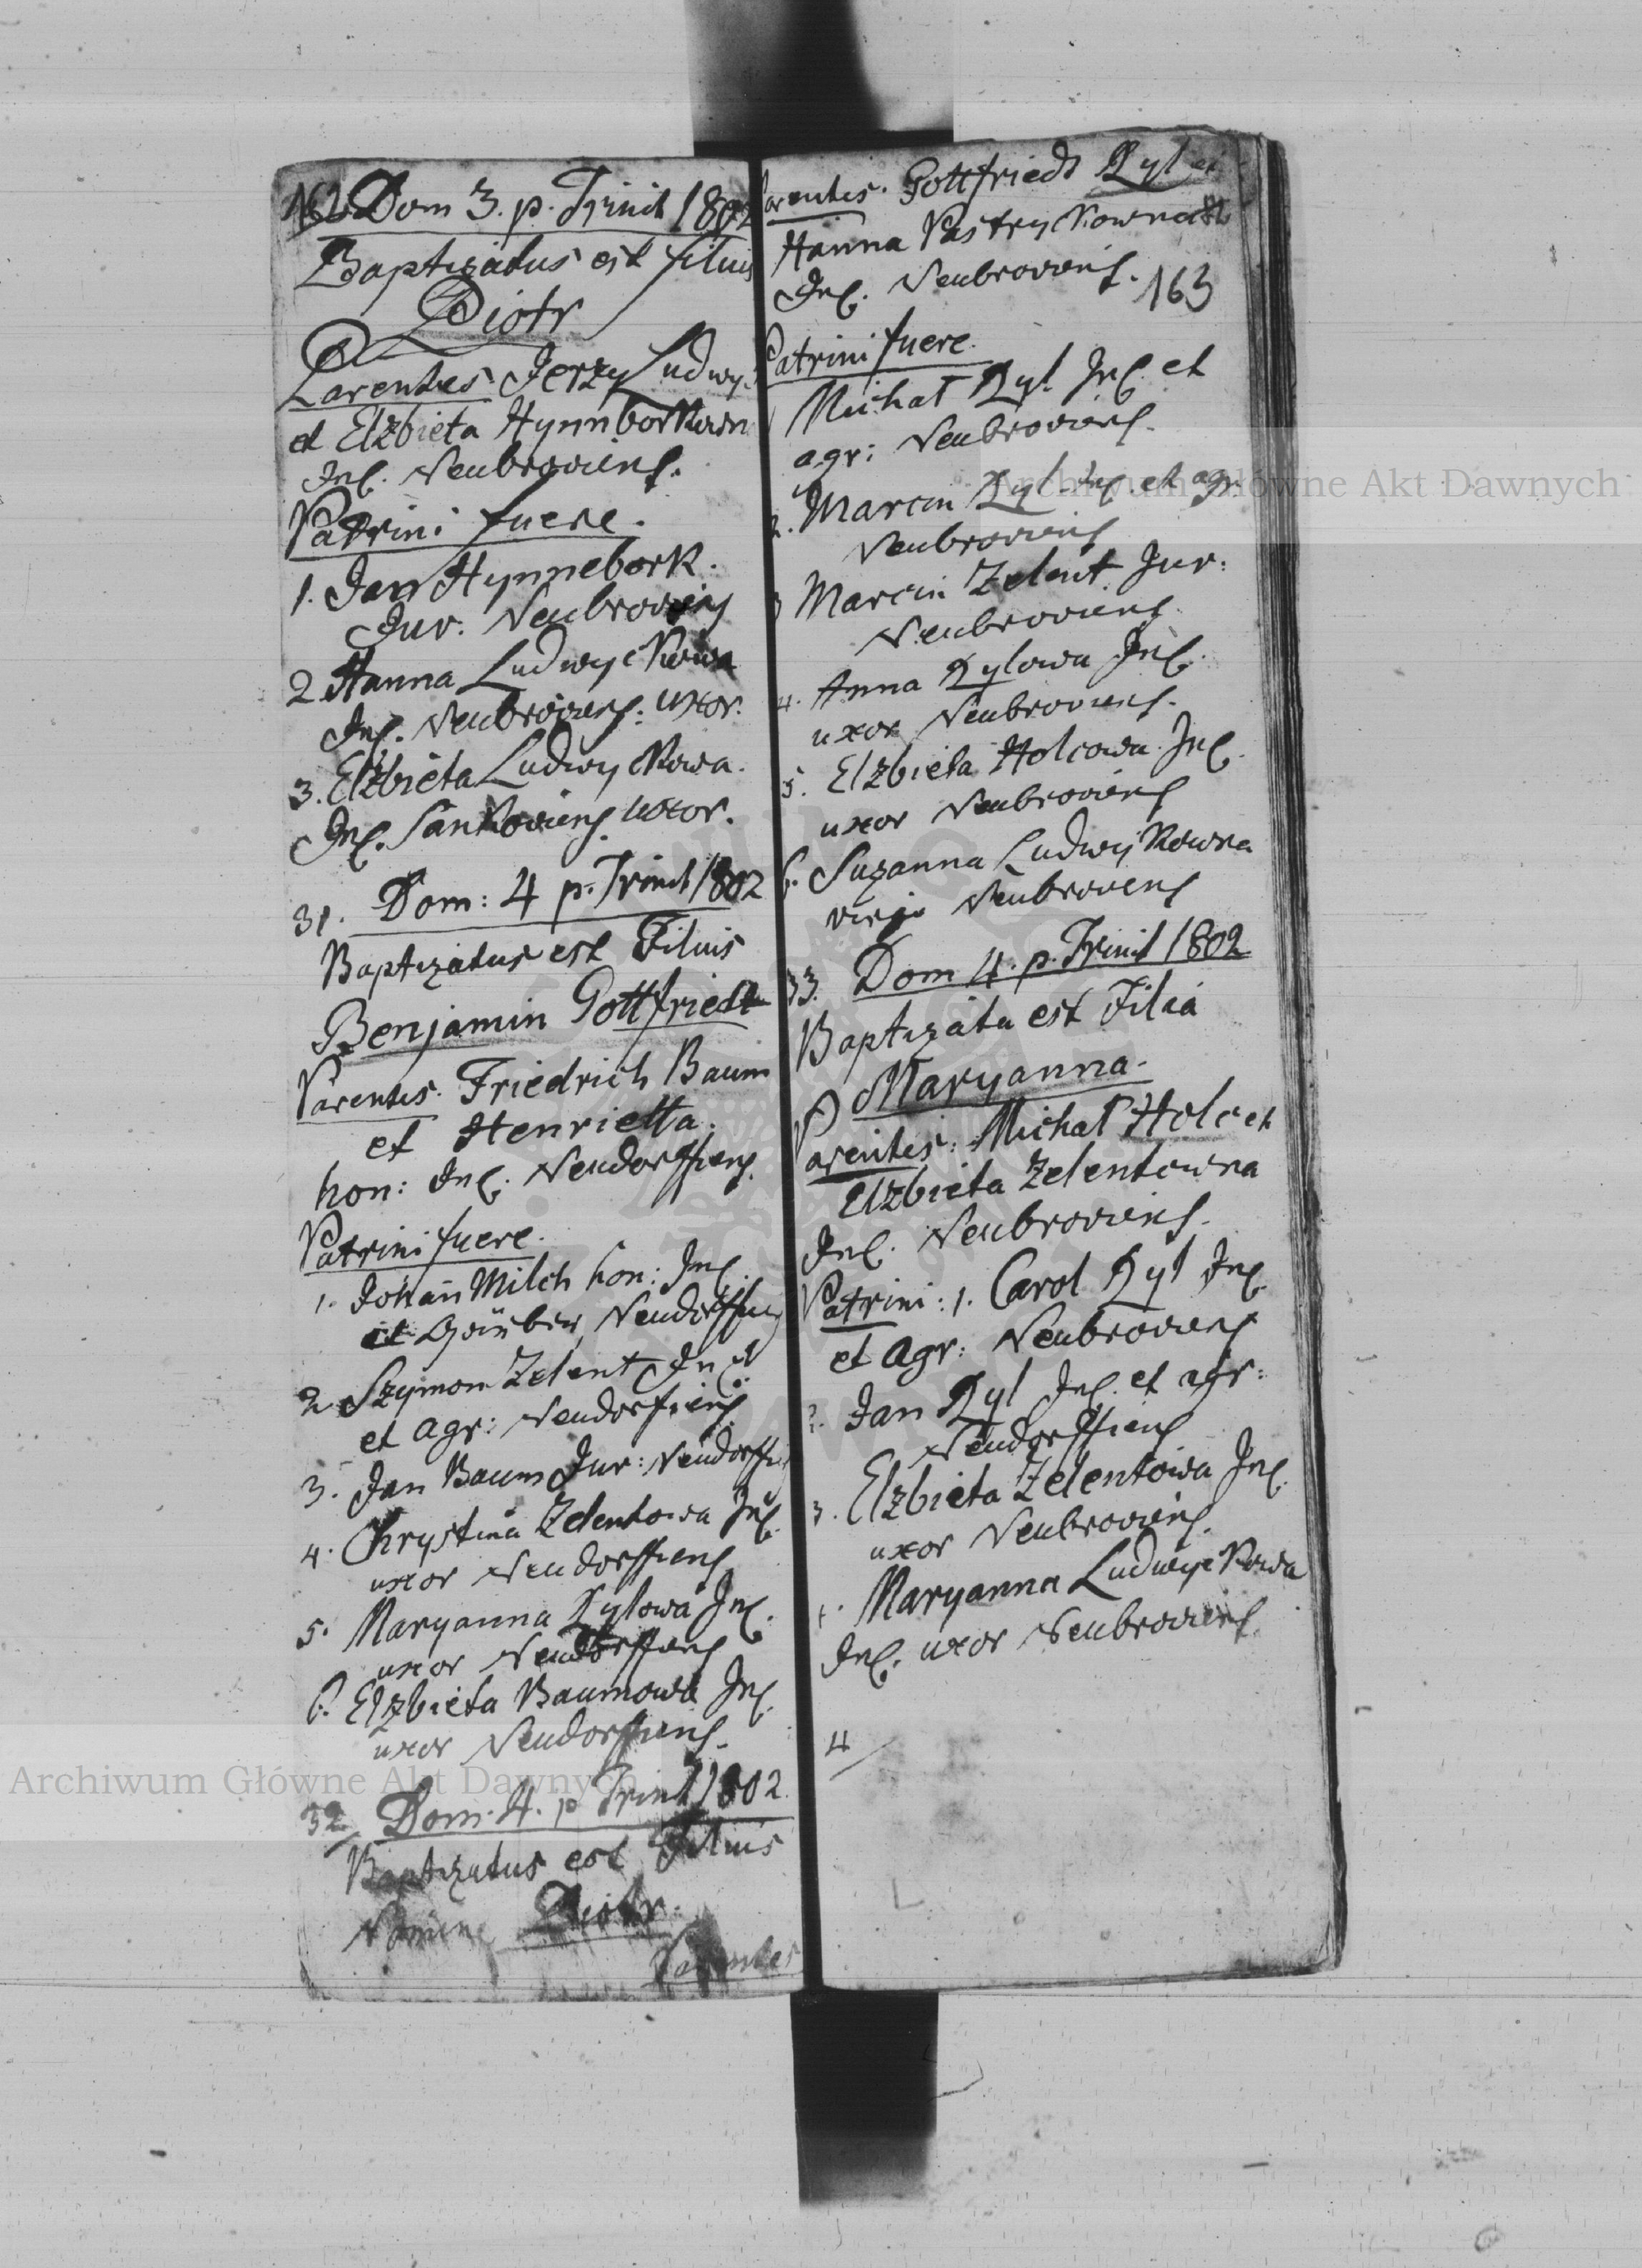 162 Dom 3. p. Trinit 1802
Baptizatus est filius
Piotr
Parentes Jerzy Ludwy
et Elzbieta Hynnborkown
Inc. Neubroviens.
Patrini fuere.
1. Jan Hynnebork.
Juv. Neubroviens
2 Hanna Ludwyckowa
Inc. Neubroviens. uxor.
3. Elzbieta Ludwyckowa.
Inc. Sankoviens. uxor.
31. Dom: 4 p. Trinit 1802
Baptizatus est Filius
Benjamin Gottfriedt
Parentes. Friedrich Baum
et Henrietta.
hon: Inc. Neudorffiens.
Patrini fuere.
1. Johan Milch hon: Inc.
et Neudorffiens
2 Szymon Zelent Inc
et agr: Neudorffiens
3. Jan Baum Juv: Neudorffiens
4. Chrystina Zelentowa Inc.
uxor Neudorffiens
5. Maryanna Rylowa Inc.
uxor Neudorffiens
6. Elzbieta Baumowa Inc.
uxor Neudorffiens.
32 Dom. 4. p Trinit 1802.
Baptizatus est Filius
Nomine Piotr.
Parentes
arentes. Gottfriedt Ryl et
Hanna Pastryckowna
Inc. Neubroviens. 163
Patrini fuere.
Michał Ryl Inc. et
agr: Neubroviens.
2. Marcin Ryl Inc. et agr
Neubroviens
3 Marcin Zelent Juv:
Neubroviens.
4. Anna Rylowa Inc.
uxor Neubroviens.
5. Elzbieta Holcowa Inc.
uxor Neubroviens
6. Suzanna Ludwyckowna
virgo Neubroviens
33. Dom 4. p. Trinit 1802
Baptizata est Filia
Maryanna.
Parentes: Michał Holc et
Elzbieta Zelentowna
Inc. Neubroviens.
Patrini: 1. Carol Ryl Inc.
et Agr: Neubroviens
2. Jan Ryl Inc. et agr:
Neudorffiens
3. Elzbieta Zelentowa Inc.
uxor Neubroviens.
4. Maryanna Ludwyckowa
Inc. uxor Neubroviens.
4
Archiwum Główne Akt Dawnych
Archiwum Główne Akt Dawnych